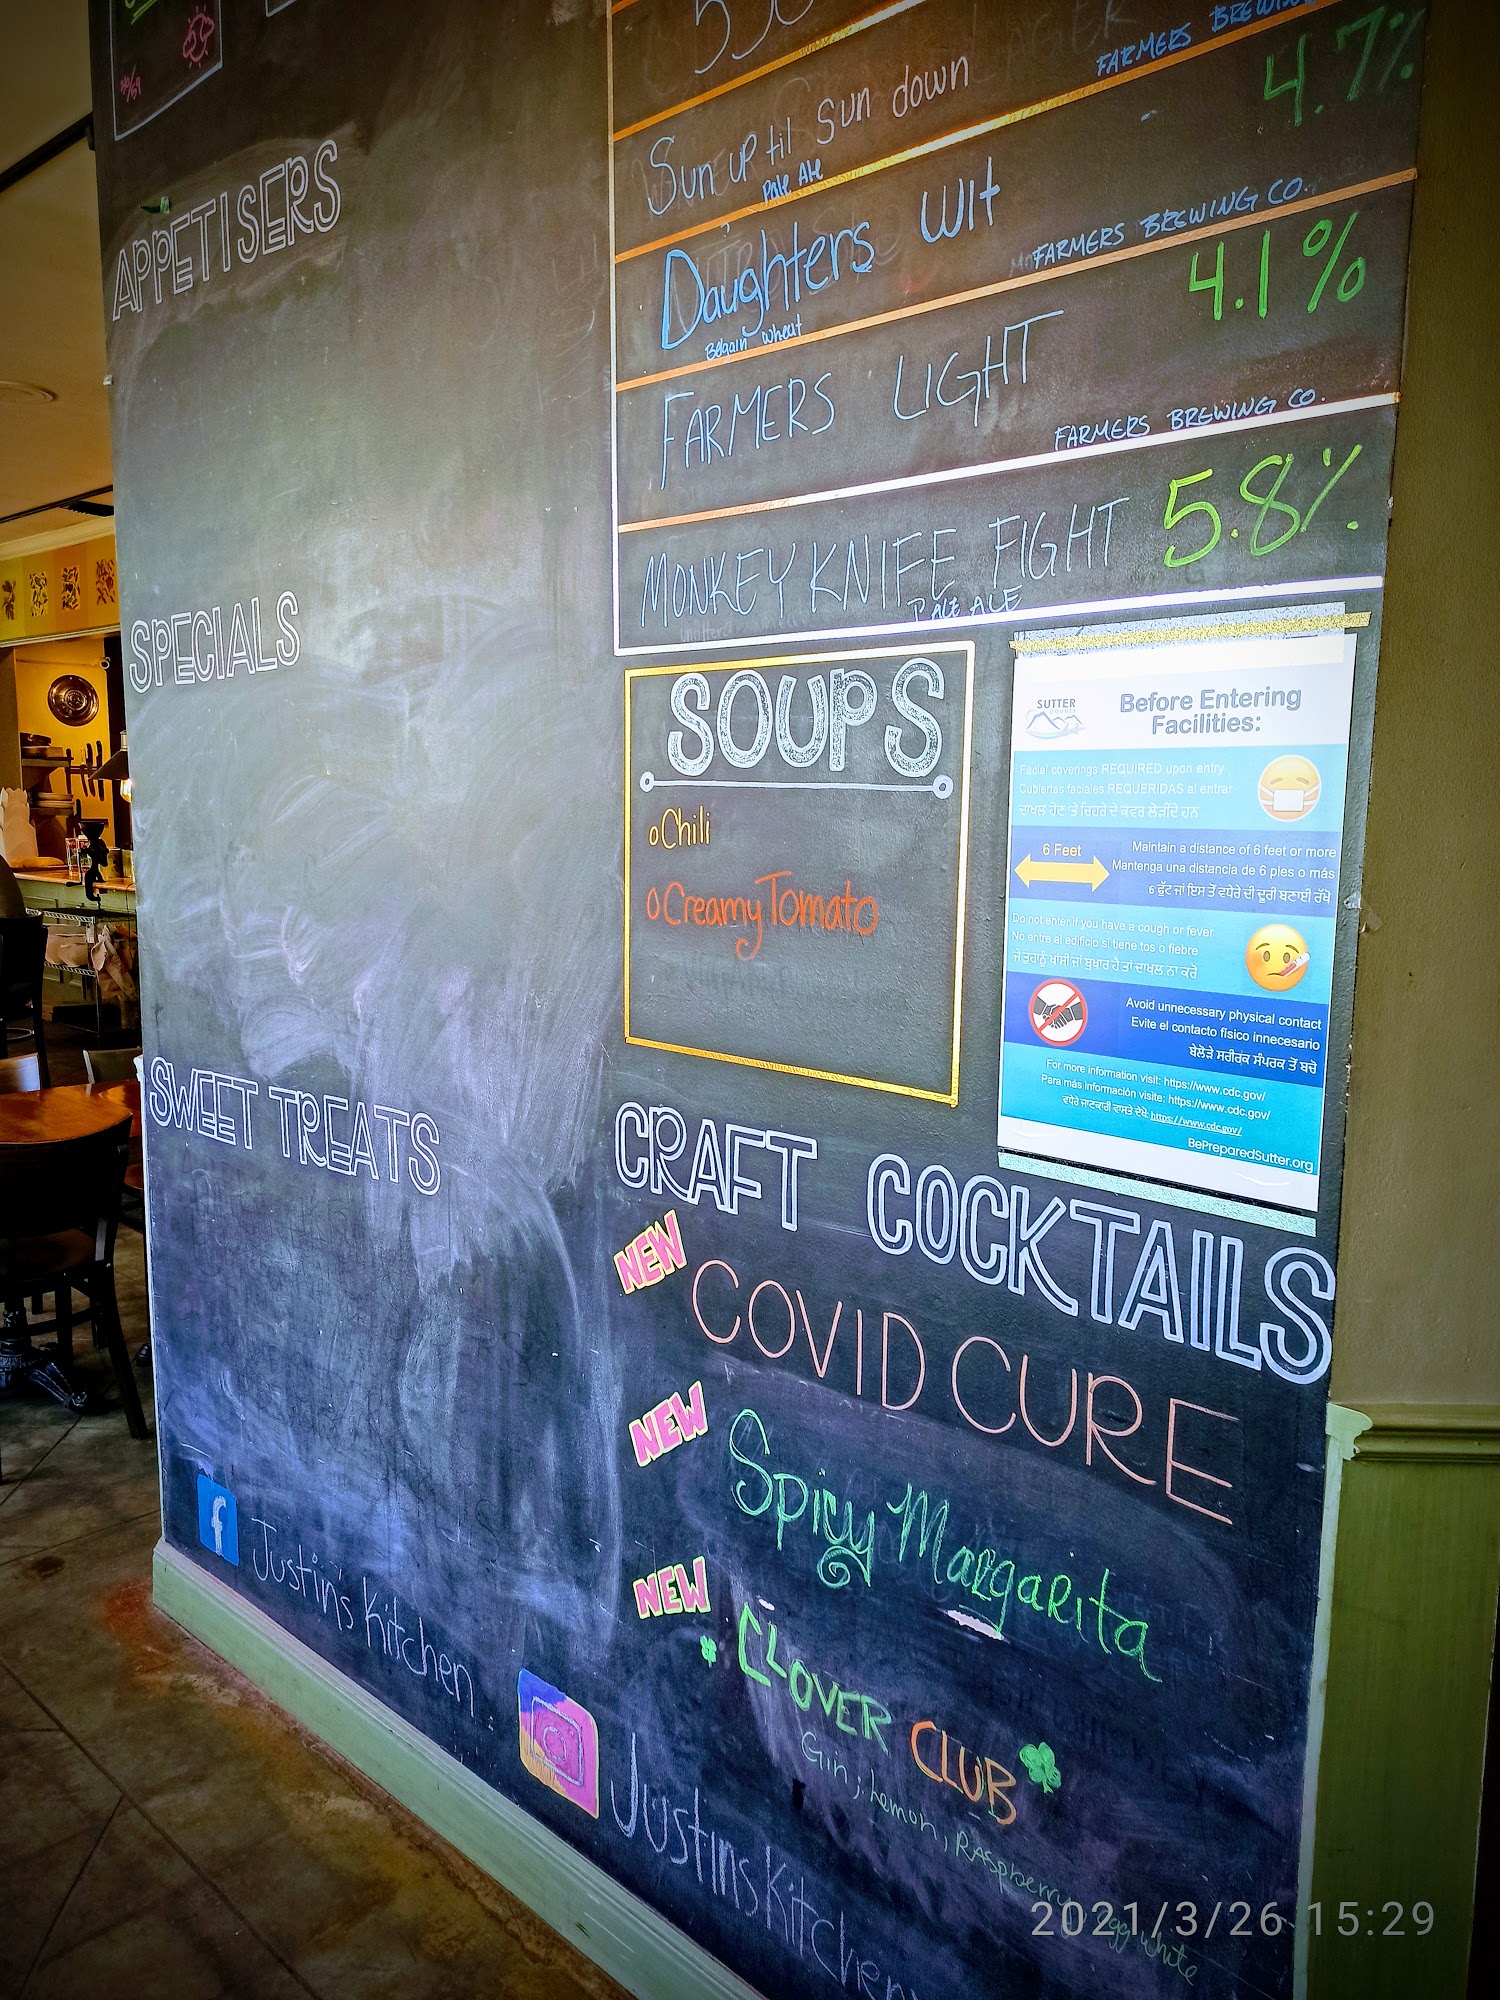 APPETISERS
SPECIALS
SWEET TREATS
Justin's Kitchen
JustinsKitchen
FARMERS BREWING
Sun up til Sun down
Pale Ale
4.7%
Daughters Wit
Belgain wheat
FARMERS BREWING CO.
4.1%
FARMERS LIGHT
FARMERS BREWING CO.
MONKEY KNIFE FIGHT
PALE ALE
5.8%
SOUPS
Chili
Creamy Tomato
SUTTER
COUNTY
Before Entering
Facilities:
Facial coverings REQUIRED upon entry
Cubiertas faciales REQUERIDAS al entrar
ਦਾਖਲ ਹੋਣ 'ਤੇ ਚਿਹਰੇ ਦੇ ਕਵਰ ਲੋੜੀਂਦੇ ਹਨ
6 Feet
Maintain a distance of 6 feet or more
Mantenga una distancia de 6 pies o más
6 ਫੁੱਟ ਜਾਂ ਇਸ ਤੋਂ ਵਧੇਰੇ ਦੀ ਦੂਰੀ ਬਣਾਈ ਰੱਖੋ
Do not enter if you have a cough or fever
No entre al edificio si tiene tos o fiebre
ਜੇ ਤੁਹਾਨੂੰ ਖਾਂਸੀ ਜਾਂ ਬੁਖਾਰ ਹੈ ਤਾਂ ਦਾਖਲ ਨਾ ਕਰੋ
Avoid unnecessary physical contact
Evite el contacto físico innecesario
ਬੇਲੋੜੇ ਸਰੀਰਕ ਸੰਪਰਕ ਤੋਂ ਬਚੋ
For more information visit: https://www.cdc.gov/
Para más información visite: https://www.cdc.gov/
ਵਧੇਰੇ ਜਾਣਕਾਰੀ ਵਾਸਤੇ ਦੇਖੋ: https://www.cdc.gov/
BePreparedSutter.org
CRAFT COCKTAILS
NEW
COVID CURE
NEW
Spicy Margarita
NEW
CLOVER CLUB
Gin, Lemon, Raspberry, egg white
2021/3/26 15:29